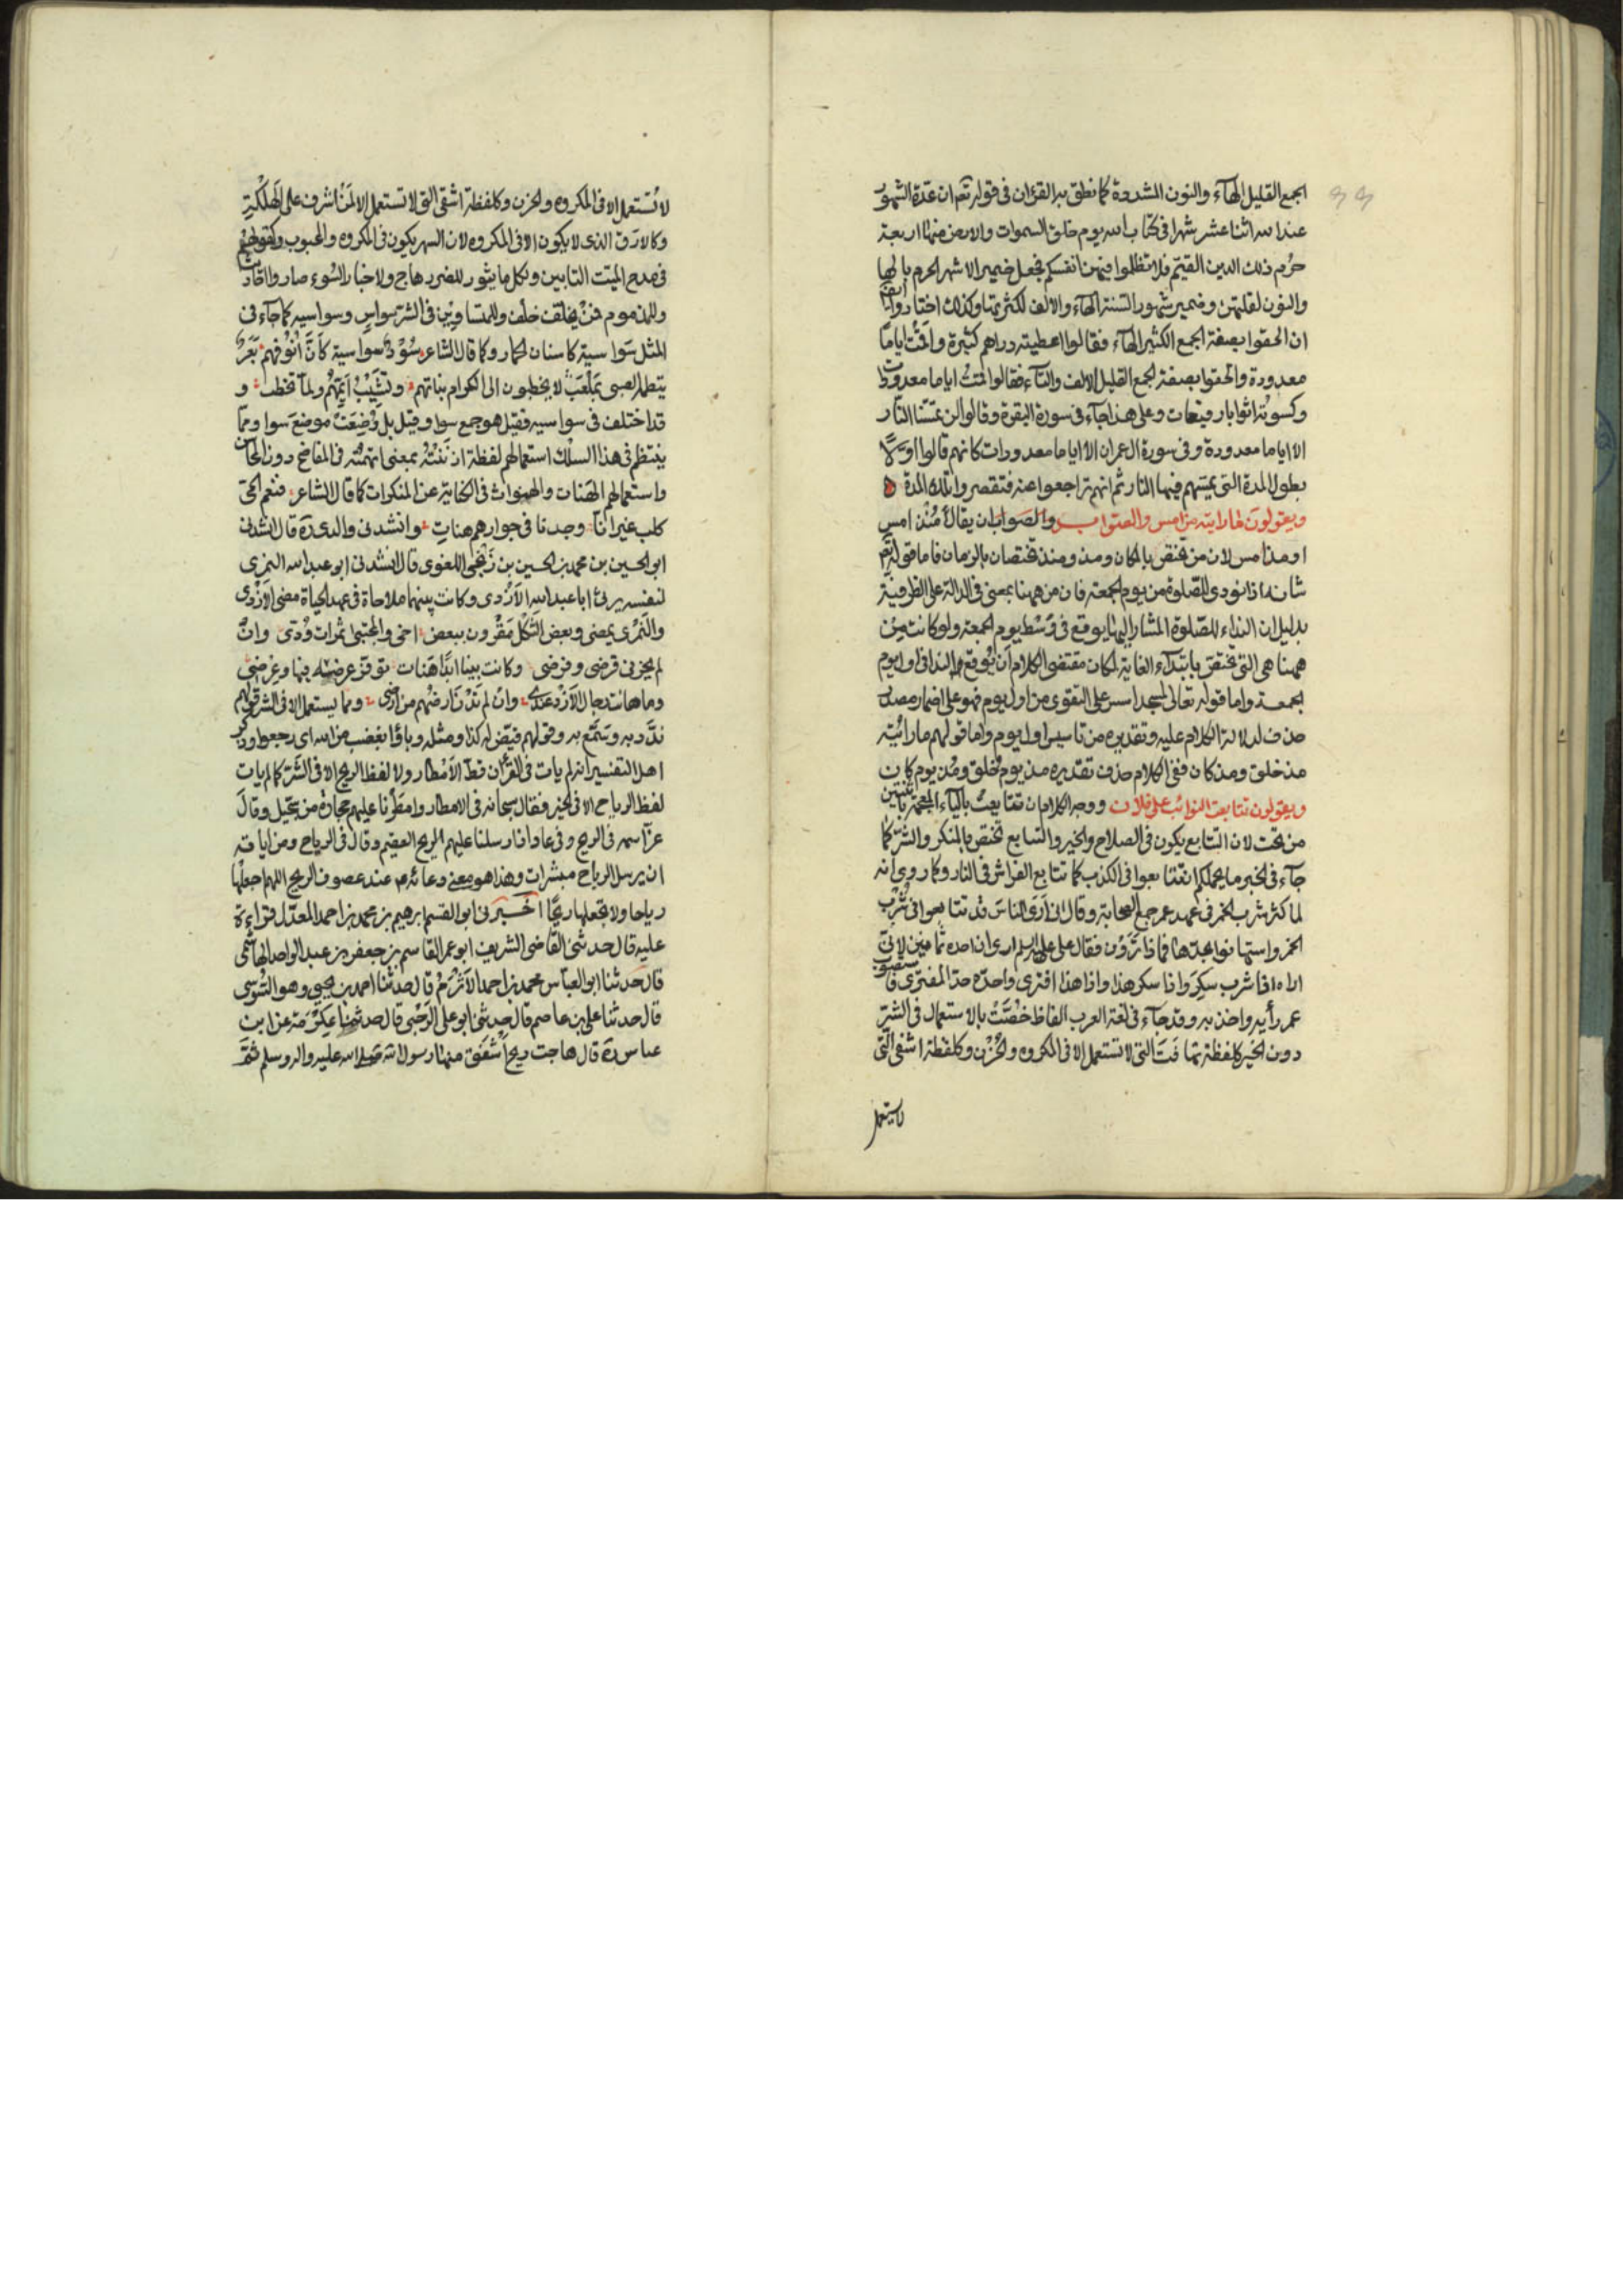 الجمع القليل الهآء والنون المشددة كما نطق به القرٰان في قوله تعم ان عدّة الشهور
عند الله اثنا عشر شهرا في كتاب الله يوم خلق السموات والارض منها اربعة
حرُم ذلك الدين القيّم فلا تظلموا فيهن انفسكم فجعل ضمير الاشهر الحرم بالها
والنون لقلتهن وضمير شهور السّنة الهآء والالف لكثرتها وكذلك اختاروا ايضًا
ان الحقوا بصفة الجمع الكثير الهآء فقالوا اعطيته دراهم كثيرة واقمتُ اياما
معدودة والحقوا بصفة الجمع القليل الالف والتآء فقالوا اقمتُ اياما معدودات
وكسوته اثوابا رفيعات وعلى هذا جآء في سورة البقرة وقالوا لن تمسّنا النّار
الا اياما معدودة وفي سورة ال عمران الا اياما معدودات كانهم قالوا اوّلًا
بطول المدة التي تمسّهم فيها النار ثم انهم تراجعوا عنه فقصروا تلك المدة
ويقولون ما رايته من امس والصّواب والصواب ان يقال مُنذ امس
او مذ امس لان من تختص بالمكان ومذ ومنذ تختصان بالزمان فاما قوله تعم
اذا نودى للصّلوة من يوم الجمعة فان من ههنا بمعنى في الدالة على الظرفية
بدليل ان النداء للصّلوة المشار اليها يوقع في وَسْط يوم الجمعة ولو كانت مِن
ههنا هى التى تختصّ بابتدآء الغاية لكان مقتضى الكلام ان يُوقع النداء في اول يوم
الجمعة واما قوله تعالى لمسجد اسس على التقوى من اول يوم فهو على اضمار مصدر
حذف لدلالة الكلام عليه وتقديره من تاسيس اول يوم واما قولهم ما رائيته
مذ خلق ومذ كان ففى الكلام حذف تقديره مذ يوم خُلق ومُذ يوم كان
ويقولون تتابعت النوائب على فلان ووجه الكلام ان تتايعت بالياء المعجمة باثنتين
من تحت لان التتابع يكون في الصلاح والخير والتتايع تختص بالمنكر والشرّ كما
جآء في الخبر ما يحملكم ان تتايعوا في الكذب كما تتايع الفراش في النار وكما روى انه
لما كثر شرب الخمر في عهد عمر جمع الصحابة وقال انى اَرَى الناسَ قد تتايعوا في شُرْب
الخمر واستهانوا بحدّها فماذا تَرَوْن فقال على عليه السلم ارى ان احده ثمانين لانى
اراه اذا شرب سكِرَ واذا سكر هذا واذا هذا افترى واحدّه حدّ المفترى فاستصوب
عمر رأيه واخذ به وقد جآء في لغة العرب الفاظ خُصَّتْ بالاستعمال في الشرّ
دون الخير كلفظة تهافَتَ التى لا تستعمل الا في المكروه والحُزْن وكلفظة اشفى التى
لا تستعمل
لا تُستعمل الا في المكروه والحزن وكلفظة اشفى التى لا تستعمل الا لمنْ اشرف على الهلكة
وكالارق الذى لا يكون الا في المكروه لان السهر يكون في المكروه والمحبوب وكقولهم
في مدح الميّت التابين ولكل ما يثور للضرر هاج ولاخبار السُوء صاروا احاديث
وللمذموم ممّنْ يخلف خلْف وللمتساوِين في الشرّ سواسٍ وسواسيه كما جآء في
المثل سَواسية كاسنان الحمار وكما قال الشاعر سُوْد سواسية كأنَّ اُنُوْفهم بَعَرٌ
ينظمه الصبى بمَلْعَبٍ لا يخطبون الى الكرام بناتهم وتشِيْبُ ايّمهُم ولمآ تخطب و
قد اختلف في سواسيه فقيل هو جمع سوا وقيل بل وُضِعَتْ موضع سَوا ومما
ينتظم في هذا السلك استعمالهم لفظة ازنَنْتُهُ بمعنى اتهمتُه في المقابح دون المحاسن
واستعمالهم الهَنات والهنوات في الكناية عن المنكرات كما قال الشاعر فنعم الحىّ
كلب غير انّا وجدنا في جوارهم هناتِ وانشدنى والدى رَه قال انشدنى
ابو الحسين بن محمد بن الحسين بن زَنجى اللغوى قال انشدنى ابو عبد الله النمرى
لنفسه يرثى ابا عبد الله الاَزْدى وكانت بينهما ملاحاة في عهد الحياة مضى الاَزْدى
والنَمْرى يمضى وبعض الشَكل مَقْرون ببعض اخى والمجتبى ثمرات وُدّى وانْ
لم يجزنى قرضى وفرضى وكانت بيننا ابدًا هَنات توفّر عرضه فيها وعِرضى
وما هانت رجال الاَزْد عندى وان لم تَدْنُ ارضُهم من ارضى ومما يستعمل الا في الشر قولهم
ندَّد به وسَمَّع به وقولهم قيّض له كذا ومثله وباؤا بغضب من الله اى رجعوا وذكر
اهل التفسير انه لم يات في القرٰان لفظ الاَمْطار ولا لفظ الريح الا في الشَرّ كما لم يات
لفظ الرياح الا في الخير فقال سبحانه في الامطار وامطَرنا عليهم حجارةً من سجّيل وقال
عزّ اسمه في الريح وفي عاد اذ ارسلنا عليهم الريح العقيم وقال في الرياح ومن اياته
ان يرسل الرياح مبشرات وهذا هو معنى دعائه ع عند عصوف الريح اللهم اجعلها
رياحا ولا تجعلها ريحًا اخبرنى ابو القسم ابرهيم بن محمد بن احمد المعدّل قراءةً
عليه قال حدثنى القاضى الشريف ابو عمر القاسم بن جعفر بن عبد الواحد الهاشمى
قال حدّثنا ابو العبّاس محمد بن احمد الاَثْرَمُ قال حدثنا احمد بن يحيى وهو السُوسى
قال حدثنا على بن عاصم قال حدثنى ابو على الرَحْبى قال حدثنا عِكْرَمة عن ابن
عباس رَه قال هاجت ريحٌ اَشْفَقَ منها رسول الله صلى الله عليه واله وسلم ثمّ